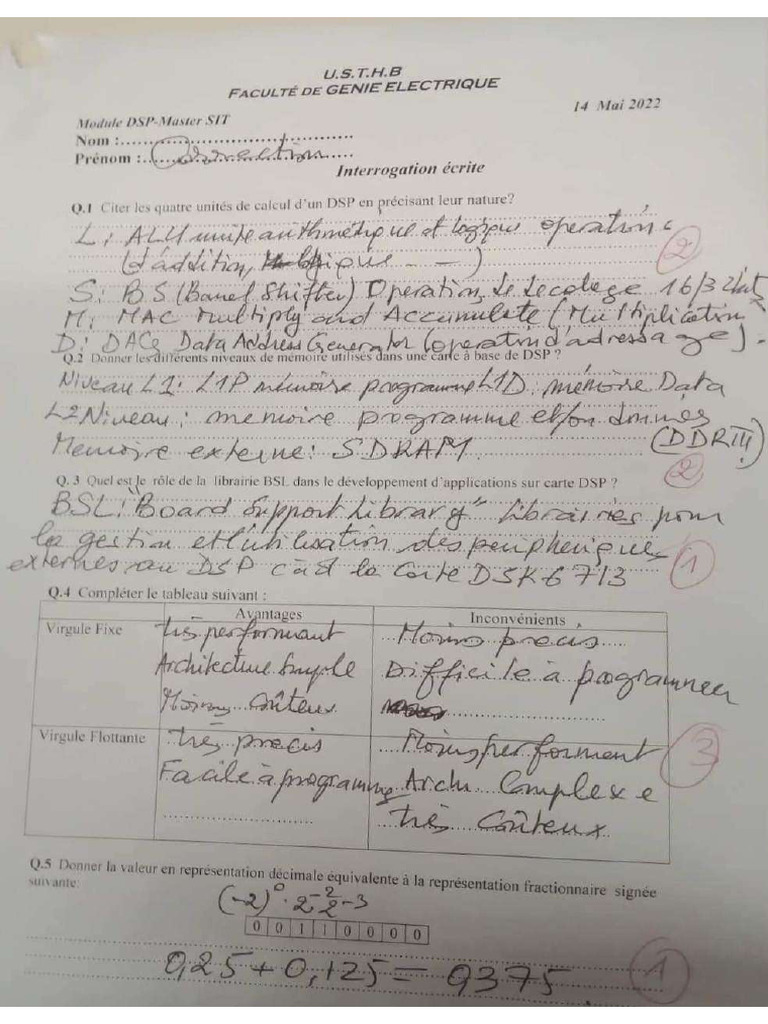 U.S.T.H.B
FACULTÉ DE GENIE ELECTRIQUE
14 Mai 2022
Module DSP-Master SIT
Nom :
Prénom :
Interrogation écrite
Q.1 Citer les quatre unités de calcul d'un DSP en précisant leur nature?
L : ALU unite arithmétique et logique operation
(d'addition, logique - -)
2
S : BS (Barrel Shifter) Operation de decalage 16/32 bits
M : MAC Multiply and Accumulate (Multiplication
D : DAG Data Address Generator (operation d'adressage).
Q.2 Donner les différents niveaux de mémoire utilisés dans une carte à base de DSP ?
Niveau L1 : L1P mémoire programme L1D : mémoire Data
L2 Niveau : memoire programme et/ou données
Memoire externe : SDRAM (DDRIII)
2
Q. 3 Quel est le rôle de la librairie BSL dans le développement d'applications sur carte DSP ?
BSL : Board Support Library" librairies pour
la gestion et l'utilisation des peripheriques
externes au DSP càd la carte DSK6713
1
Q.4 Compléter le tableau suivant :
Avantages Inconvénients
Virgule Fixe
très performant Moins precis
Architecture Simple Difficile à programmer
Moins Coûteux
Virgule Flottante
très precis Moins performent
3
Facile à programme Archi Complexe
très Coûteux
Q.5 Donner la valeur en représentation décimale équivalente à la représentation fractionnaire signée
suivante:
(-2)⁰ . 2⁻² 2⁻³
0 0 1 1 0 0 0 0
0,25 + 0,125 = 0,375
1